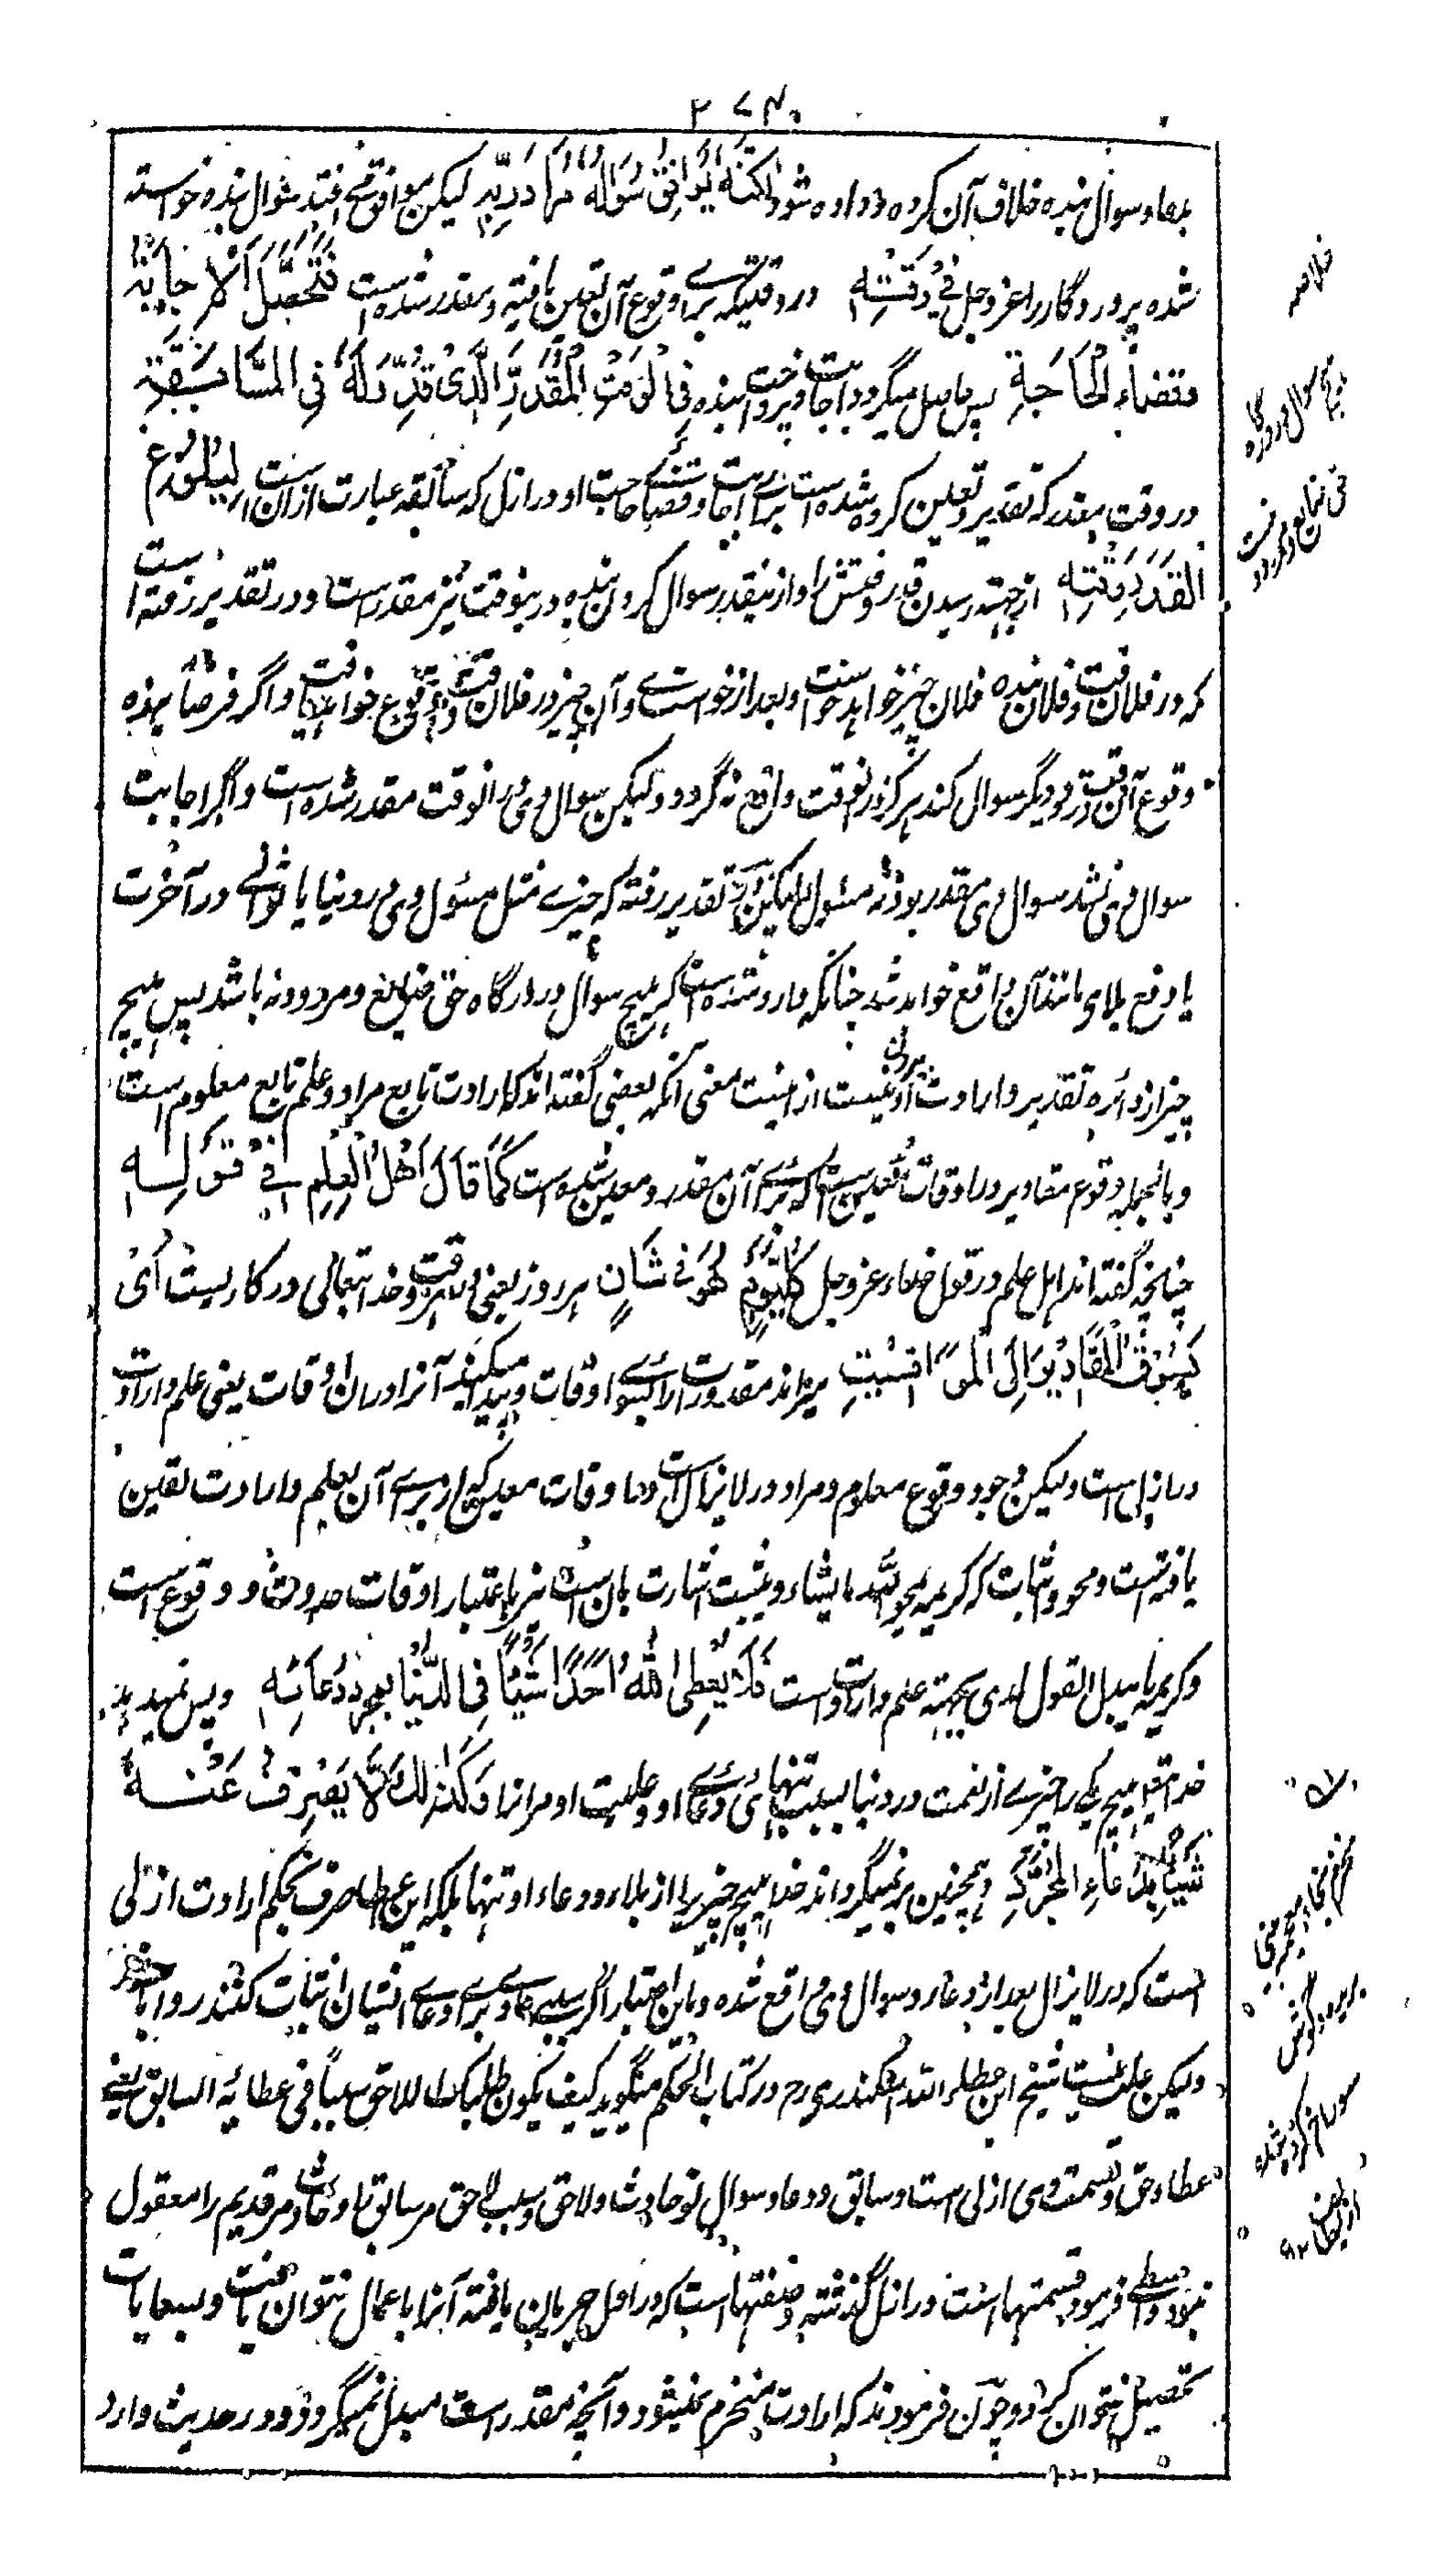 ۲۷۴
بدعا و سوال بنده خلاف آن کرده و داده شود لٰکِنَّهٗ یُوَافِقُ سُؤَالُهٗ مُرَادَ رَبِّهٖ لیکن موافق می افتد سوال بنده خواسته
شده پروردگار را عز و جل فِیْ وَقْتِهٖ در وقتیکه برای وقوع آن تعین یافته و مقدر شده است فَتَحْصُلُ الْاِجَابَةُ
وَ قَضَاءُ الْحَاجَةِ پس حاصل میگردد اجابت و پرداخت بنده فِی الْوَقْتِ الْمُقَدَّرِ الَّذِیْ قَدَّرَ لَهٗ فِی السَّابِقَةِ
در وقت مقدر که تقدیر و تعین کرده شده است برای اجابت و قضای حاجت او در ازل که سابقه عبارت از آن است لِبُلُوْغِ
الْقَدَرِ وَقْتَهٗ از جهت رسیدن قدر وقتش را و ازینقدر سوال کردن بنده درینوقت نیز مقدر است و در تقدیر رفته است
که در فلان وقت فلان بنده فلان چیز خواهد خواست و بعد از خواست وی آن چیز در فلان وقت وقوع خواهد یافت و اگر فرضا بنده
وقوع آن در وقت دیگر سوال کند هرگز در آنوقت واقع نه گردد و لیکن سوال وی در آنوقت مقدر شده است و اگر اجابت
سوال وی نشد سوال وی مقدر بود نه مسئول لیکن در تقدیر رفته که چیزے مثل مسئول وی در دنیا یا ثوابے در آخرت
یا دفع بلای مانند آن واقع خواهد شد چنانکه وارد شده است که هیچ سوال در درگاه حق ضایع و مردود نه باشد پس هیچ
چیز از دائره تقدیر و ارادت او بیرون نیست از اینست معنی آنکه بعضی گفته اند که ارادت تابع مراد و علم تابع معلوم است
و بالجمله وقوع مقادیر در اوقات معین است که برای آن مقدر و معین شده است کَمَا قَالَ اَهْلُ الْعِلْمِ فِیْ قَوْلِهٖ
چنانچه گفته اند اهل علم در قول خداء عز و جل کُلَّ یَوْمٍ هُوَ فِیْ شَانٍ هر روز یعنی هر وقت خدا تعالی در کاریست اَیْ
یَسُوْقُ الْمَقَادِیْرَ اِلَی الْمَوَاقِیْتِ میراند مقدورات را بسوی اوقات و پیدا میکند آنرا دران اوقات یعنی علم و ارادت
در ازل است و لیکن وجود و وقوع معلوم و مراد در لایزال است و در اوقات معین که از برای آن بعلم و ارادت تعین
یافته است و محو و اثبات که کریمه یمحو الله ما یشاء و یثبت اشارت بان است نیز باعتبار اوقات حدوث و وقوع است
و کریمه ما یبدل القول لدی بجهته علم و ارادت است فَلَا یُعْطِی اللهُ اَحَدًا شَیْئًا فِی الدُّنْیَا بِمُجَرَّدِ دُعَائِهٖ و پس نمیدهد
خدای تعالی هیچ یکے را چیزے از نعمت در دنیا بسبب تنهای دعای او و علیت او مرانرا وَکَذٰلِكَ لَا یَصْرِفُ عَنْهُ
شَیْئًا بِدُعَاءِ الْمُجَرَّدِ و همچنین برنمیگرداند خدا هیچ چیز را از بلا رود عاء او تنها بلکه این عطا و صرف بحکم ارادت ازلی
است که در لایزال بعد از دعا و سوال وی واقع شده و باین اعتبار اگر سببے برای دعای ایشان اثبات کنند روا باشد
و لیکن علت نیست شیخ ابن عطاء الله اسکندری رح در کتاب الحکم میگوید کیف یکون طلبک اللاحق سبباً فی عطائه السابق یعنے
عطاء حق و قسمت وی ازلی است و سابق و دعا و سوال تو حادث و لاحق و سبب لاحق مر سابق را و حادث مر قدیم را معقول
نبود و واسطی فرمود قسمتها است در ازل گذشته و صفتها است که در اول جریان یافته آنرا با عمال نتوان یافت و بسعایات
تحصیل نتوان کرد و چون فرمودند که ارادت منخرم نمیشود و آنچه مقدر است مبدل نمیگردد و در حدیث وارد
خلاصه
هیچ سوال در درگاه
حق ضایع و مردود نیست